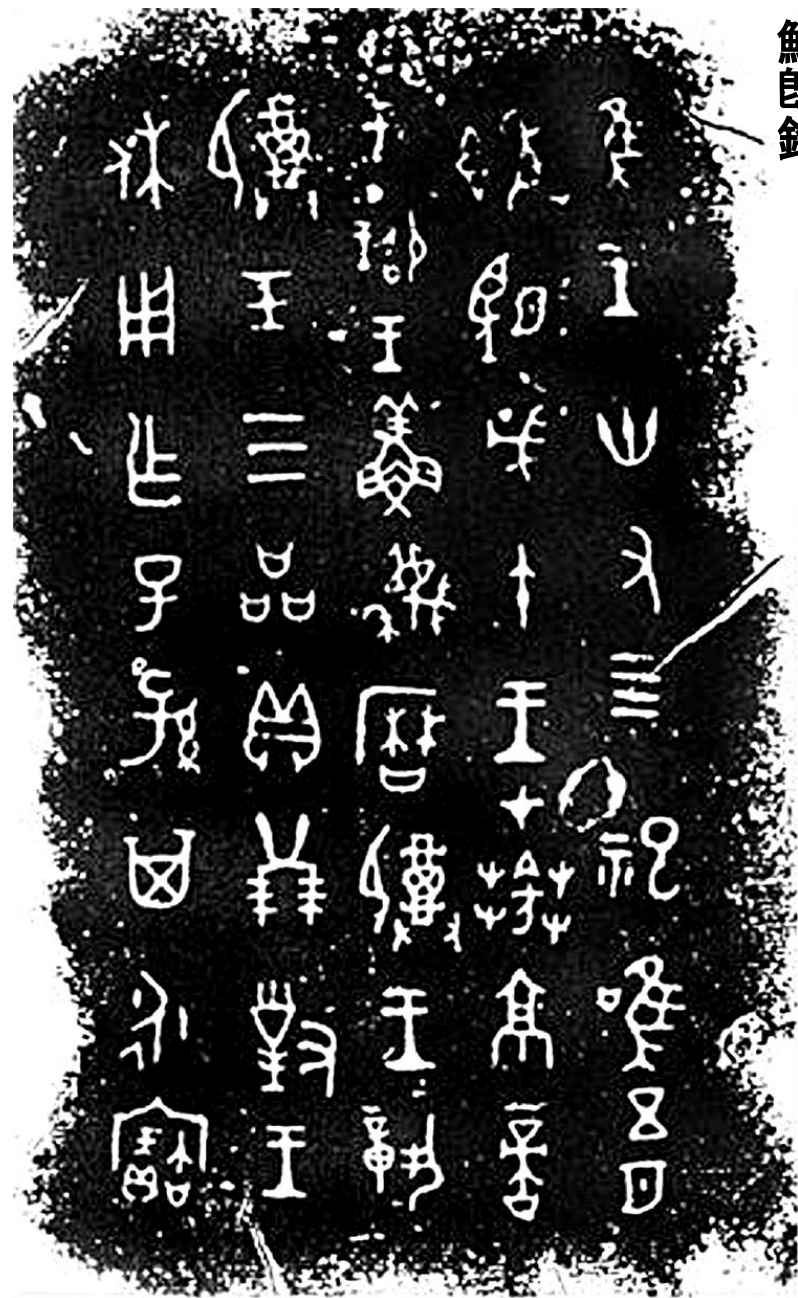 隹王卅又四祀唯五月
既望戊午王才𦱤京啻
于卲王鮮蔑曆祼王
祼玉三品貝廿朋對王
休用乍子孫其永寶